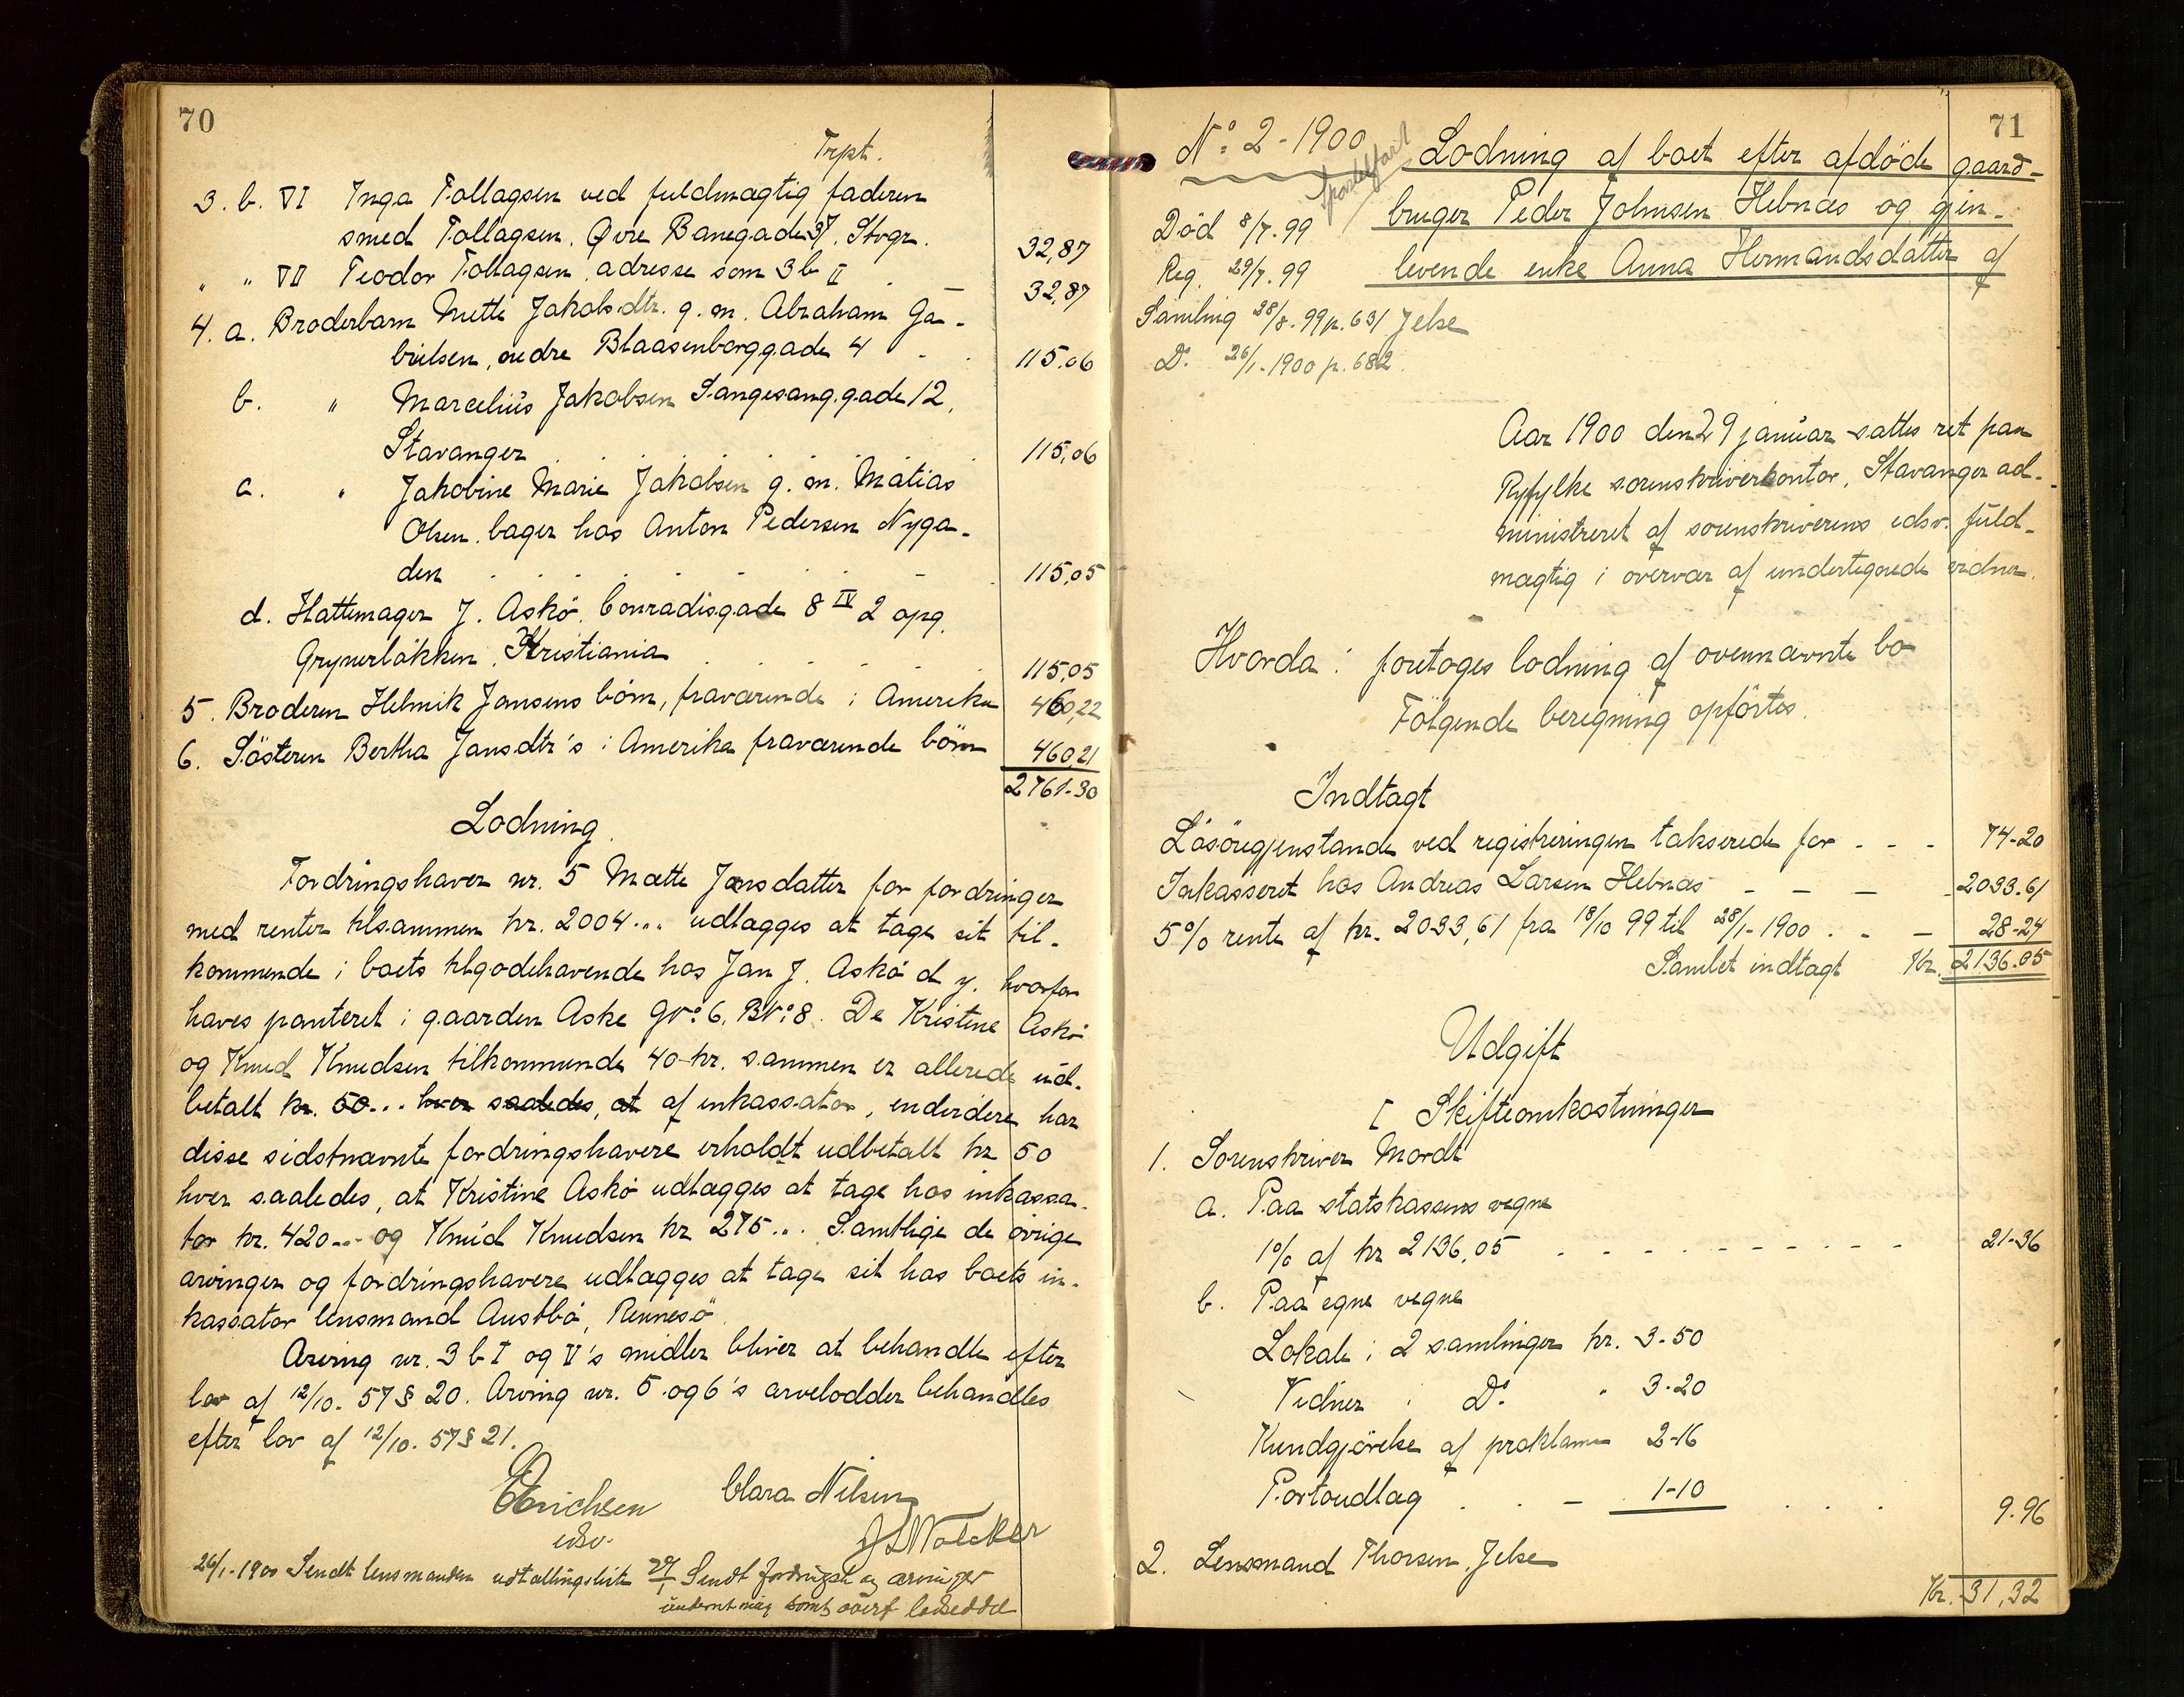 70
Trpt.
3. b. VI Inga Tollagsen ved fuldmægtig faderen
smed Tollagsen. Øvre Banegade 37. Stvgr. 32,87
" " VII Teodor Tollagsen, adresse som 3 b II 32,87
4. a. Broderbarn Mette Jakobsdtr. g. m. Abraham Ga-
brielsen, nedre Blaasenborggade 4 115,06
b. " Marcelius Jakobsen Sangesang.gade 12,
Stavanger 115,06
c. " Jakobine Marie Jakobsen g. m. Matias
Olsen. bager hos Anton Pedersen Nyga-
den 115,05
d. Hattemager J. Askö. Conradisgade 8 IV 2 opg.
Grynerløkken. Kristiania 115,05
5. Broderen Helmik Jansens börn, fraværende i Amerika 460,22
6. Sösteren Bertha Jansdtr's i Amerika fraværende börn 460,21
2761-30
Lodning.
Fordringshaver nr. 5 Mætte Jansdatter for fordringer
med renter tilsammen kr. 2004... udlægges at tage sit til-
kommende i boets tilgodehavende hos Jan J. Askö d y. hvorfor
haves panteret i gaarden Aske Gno: 6. Bno: 8. De Kristine Askö
og Knud Knudsen tilkommende 40 kr. sammen er allerede ud-
betalt kr. 50... hver saaledes, at af inkassator, endvidere har
disse sidstnævnte fordringshavere erholdt udbetalt kr 50
hver saaledes, at Kristine Askö udlægges at tage hos inkassa-
tor kr. 420... og Knud Knudsen kr 275... Samtlige de övrige
arvinger og fordringshavere udlægges at tage sit hos boets in-
kassator lensmand Austbö, Rennesö.
Arving nr. 3 b I og V's midler bliver at behandle efter
lov af 12/10. 57 § 20. Arving nr. 5 og 6's arvelodder behandles
efter lov af 12/10. 57 § 21.
Erichsen Clara Nilsen
edsv.
26/1-1900 Sendt lensmanden udtallingsliste 29/1 Sendt fordringsh og arvinger
71
No: 2 - 1900 Lodning af boet efter afdöde gaard-
Död 8/7. 99 bruger Peder Johnsen Hebnæs og gjen-
Reg. 29/7. 99 levende enke Anna Hermandsdatter af
Samling 28/8. 99 p. 631 Jelse
Do. 26/1. 1900 p. 682.
Aar 1900 den 29 januar sattes ret paa
Ryfylke sorenskriverkontor, Stavanger ad-
ministreret af sorenskriverens edsv. fuld-
mægtig i overvær af undertegnede vidner.
Hvorda: foretoges lodning af ovennævnte bo
Fölgende beregning opförtes.
Indtægt
Lösöregjenstande ved registreringen takserede for - - - 74-20
Inkasseret hos Andreas Larsen Hebnæs - - - 2033.61
5% rente af kr. 2033,61 fra 18/10 99 til 28/1- 1900 . - - 28-24
Samlet indtægt Kr. 2136.05
Udgift
I Skifteomkostninger
1. Sorenskriver Mordt
a. Paa statskassens vegne
1% af kr 2136,05 21-36
b. Paa egne vegne
Lokale i 2 samlinger kr. 3-50
Vidner i Do. " 3-20
Kundgjörelse af proklama 2-16
Portoudlæg . . - 1-10 9.96
2. Lensmand Thorsen, Jelse
Kr. 31,32